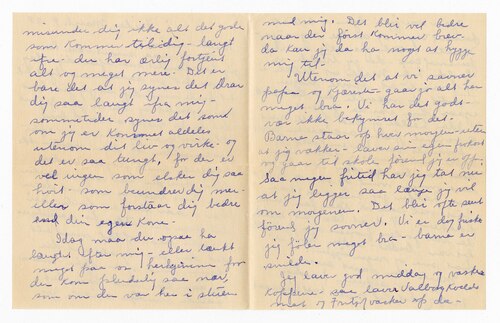 misunder dig ikke alt det gode
som kommer tilbidig - langt
fra - du har ærlig fortjent
alt og meget mere. Det er
bare det at jeg synes det drar
dig saa langt fra mig -
sommetider synes det som
om jeg er kommet aldeles
utenom dit liv og virke - og
det er saa tungt, for der er
vel ingen som elsker dig saa
høit - som beundrer dig mer -
eller som forstaar dig bedre
end din egen Kone.
Idag maa du ogsaa ha
længt efter mig - eller tænkt
meget paa os
du kom pludselig saa nær,
som om du var her i stuen
med mig. Det blir vel bedre
naar der først kommer brev -
da kan jeg da ha noget at hygge
mig til -
Utenom det at vi savner
papa og kjæresten - gaar jo alt her
meget bra. Vi har det godt -
vær ikke bekymret for det.
Barna staar op hver morgen - uten
at jeg vækker - laver sin egen frokost
og gaar til skole førend jeg er op.
Saa megen fritid har jeg tat mig
at jeg ligger saa længe jeg vil
om morgenen. Det blir ofte sent
førend jeg sovner. Vi er dog friske
jeg føler meget bra - barna er
snilde.
Jeg laver god middag og vasker
koppene - saa laver Valborg kvelds
mat og Fritjof vasker op da -